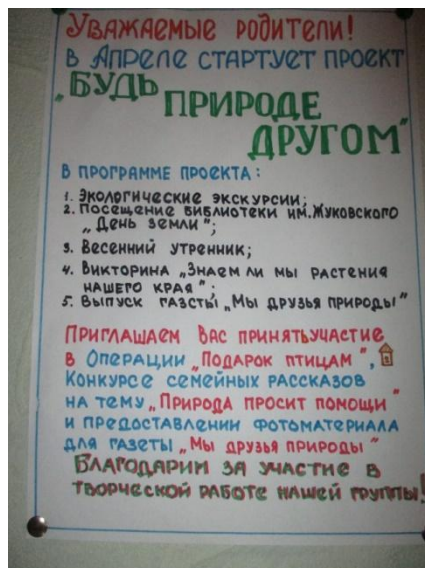 Уважаемые родители!
в Апреле стартует проект
„Будь
природе
другом"
В программе проекта:
1. Экологические экскурсии;
2. Посещение библиотеки им.Жуковского
„День земли";
3. Весенний утренник;
4. Викторина „Знаем ли мы растения
нашего края";
5. Выпуск газеты „Мы друзья природы"
Приглашаем Вас принятьучастие
в Операции „Подарок птицам",
Конкурсе семейных рассказов
на тему „Природа просит помощи"
и предоставлении фотоматериала
для газеты „Мы друзья природы"
Благодарим за участие в
творческой работе нашей группы!